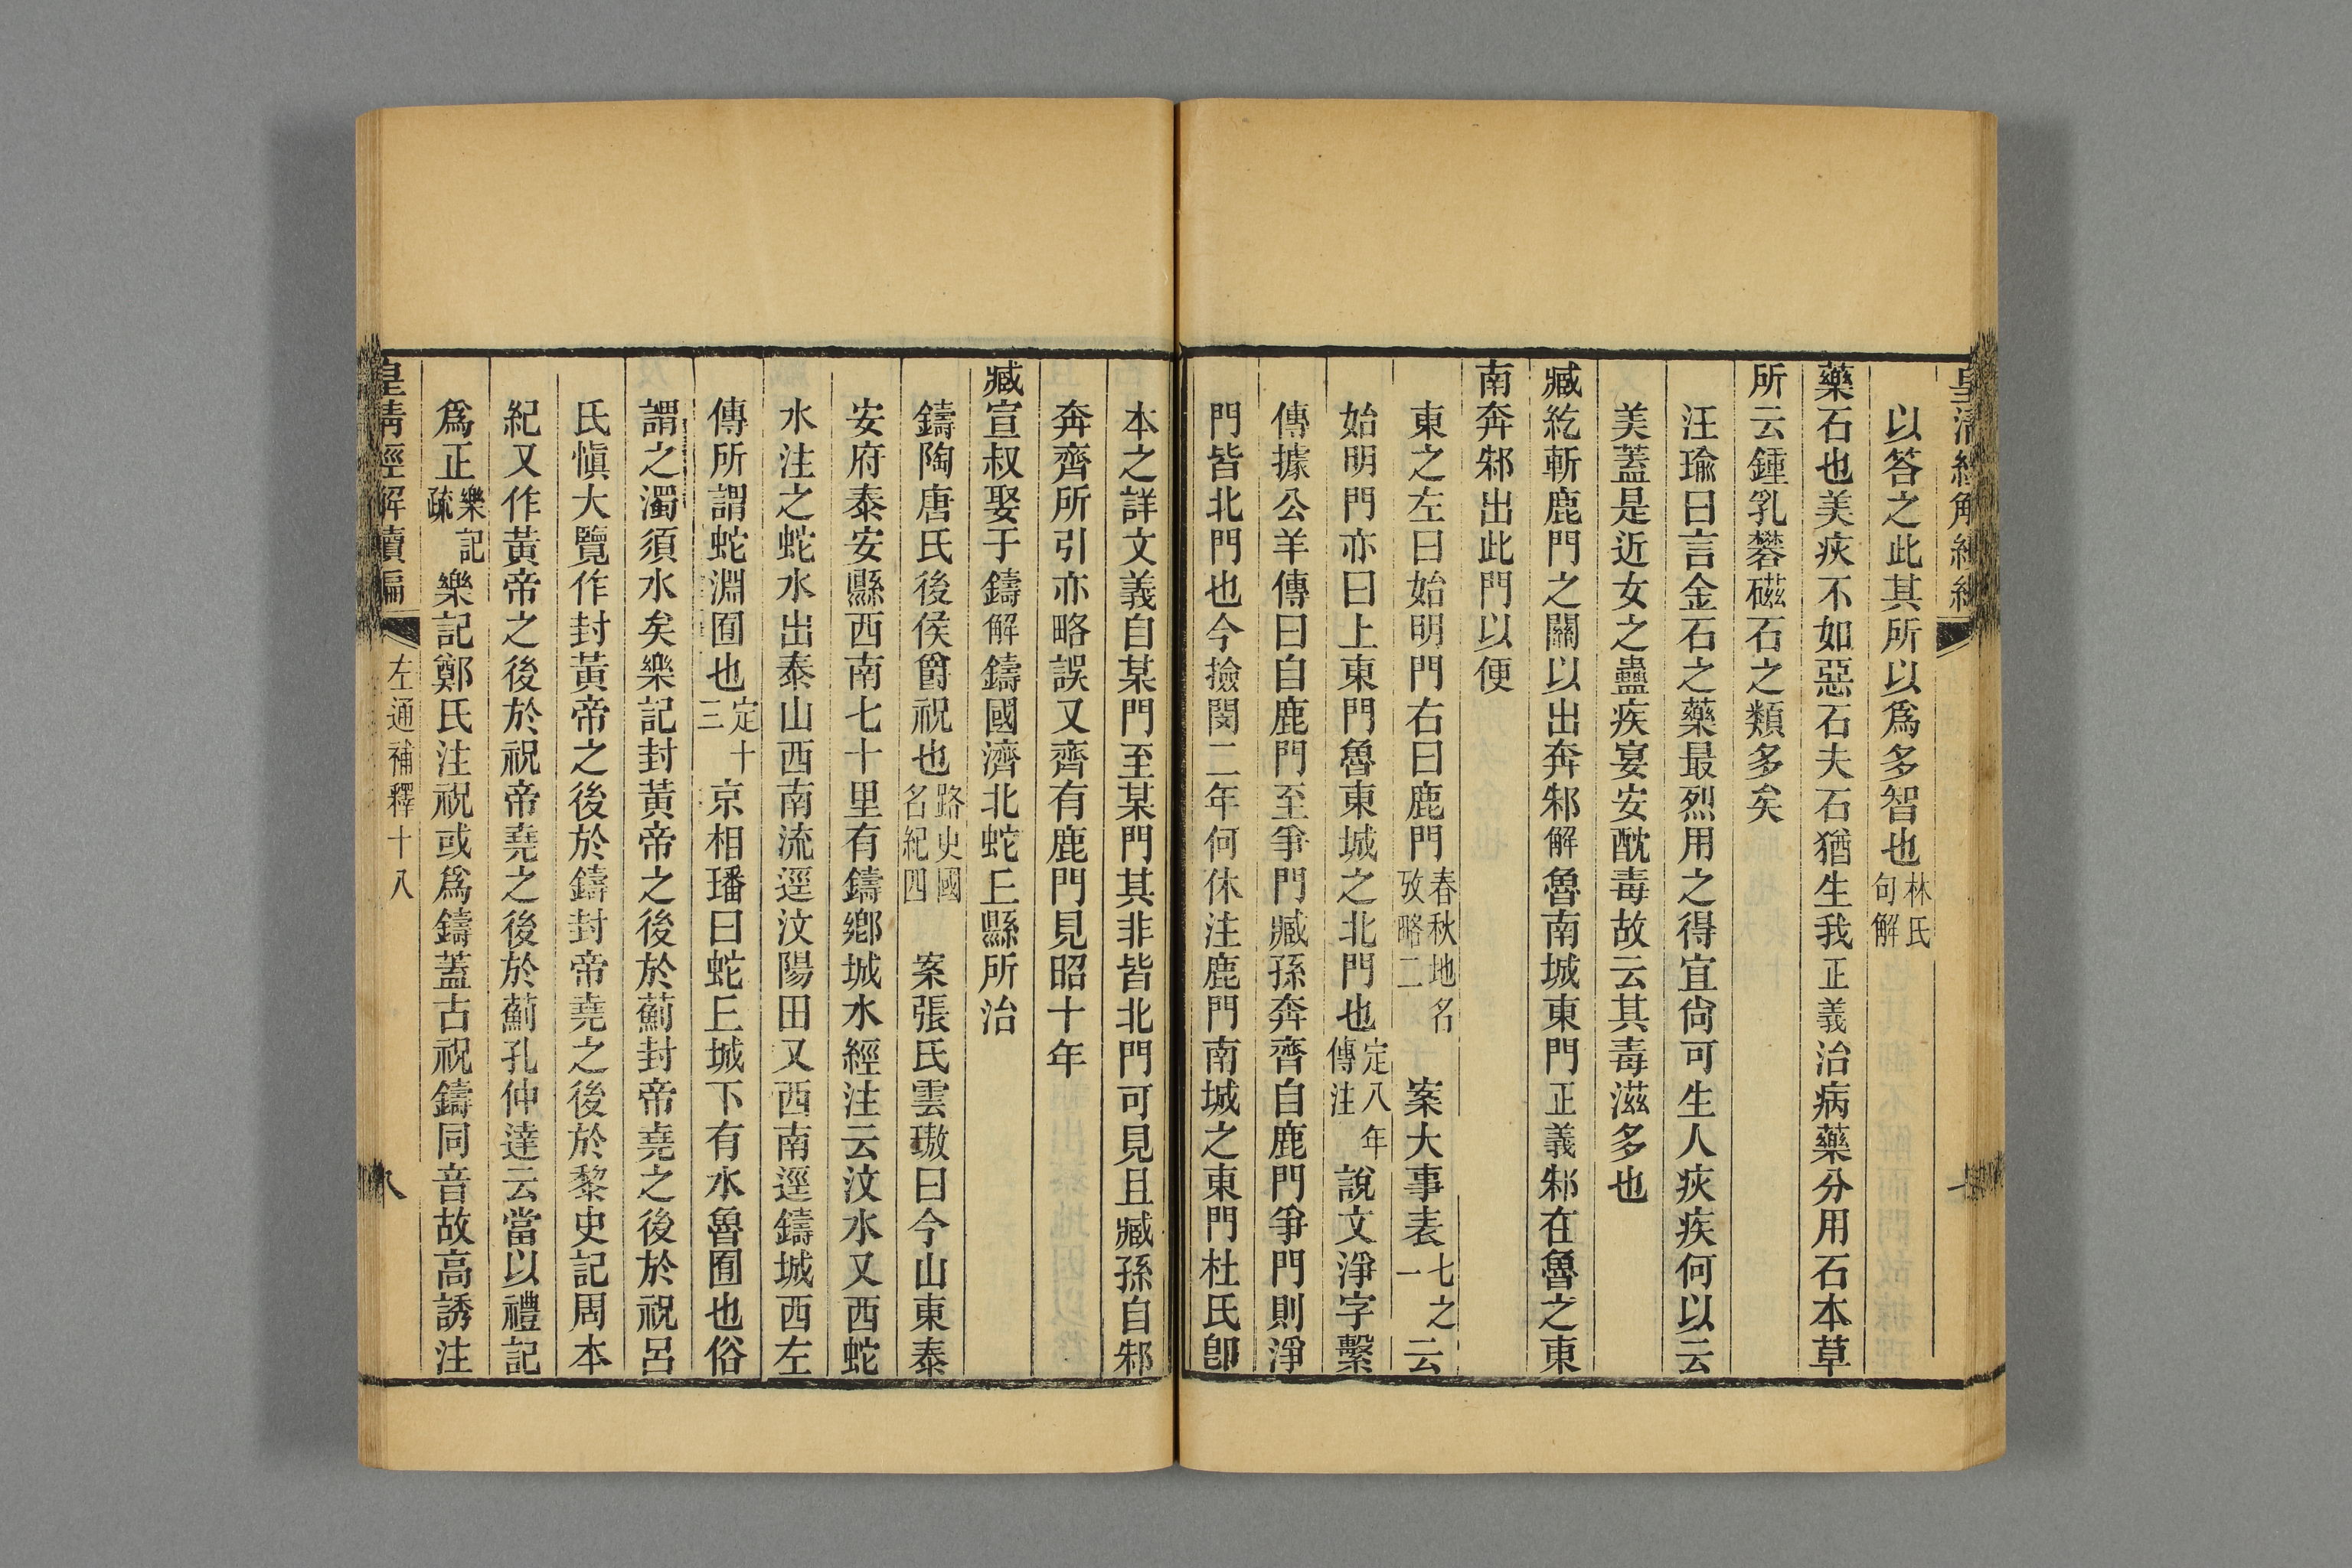 以答之此其所以爲多智也林氏句解
藥石也美疢不如惡石夫石猶生我正義治病藥分用石本草
所云鍾乳礬磁石之類多矣
汪瑜曰言金石之藥最烈用之得宜尙可生人疢疾何以云
美蓋是近女之蠱疾宴安酖毒故云其毒滋多也
臧紇斬鹿門之關以出奔邾解魯南城東門正義邾在魯之東
南奔邾出此門以便
東之左曰始明門右曰鹿門春秋地名攷略二 案大事表七之一云
始明門亦曰上東門魯東城之北門也定八年傳注說文淨字繫
傳據公羊傳曰自鹿門至爭門臧孫奔齊自鹿門爭門則淨
門皆北門也今撿閔二年何休注鹿門南城之東門杜氏卽
本之詳文義自某門至某門其非皆北門可見且臧孫自邾
奔齊所引亦略誤又齊有鹿門見昭十年
臧宣叔娶于鑄解鑄國濟北蛇丘縣所治
鑄陶唐氏後侯爵祝也路史國名紀四 案張氏雲璈曰今山東泰
安府泰安縣西南七十里有鑄鄕城水經注云汶水又西蛇
水注之蛇水出泰山西南流逕汶陽田又西南逕鑄城西左
傳所謂蛇淵囿也定十三京相璠曰蛇丘城下有水魯囿也俗
謂之濁須水矣樂記封黃帝之後於薊封帝堯之後於祝呂
氏愼大覽作封黃帝之後於鑄封帝堯之後於黎史記周本
紀又作黃帝之後於祝帝堯之後於薊孔仲達云當以禮記
爲正樂記疏樂記鄭氏注祝或爲鑄蓋古祝鑄同音故高誘注
皇淸經解續編 左通補釋十八 八